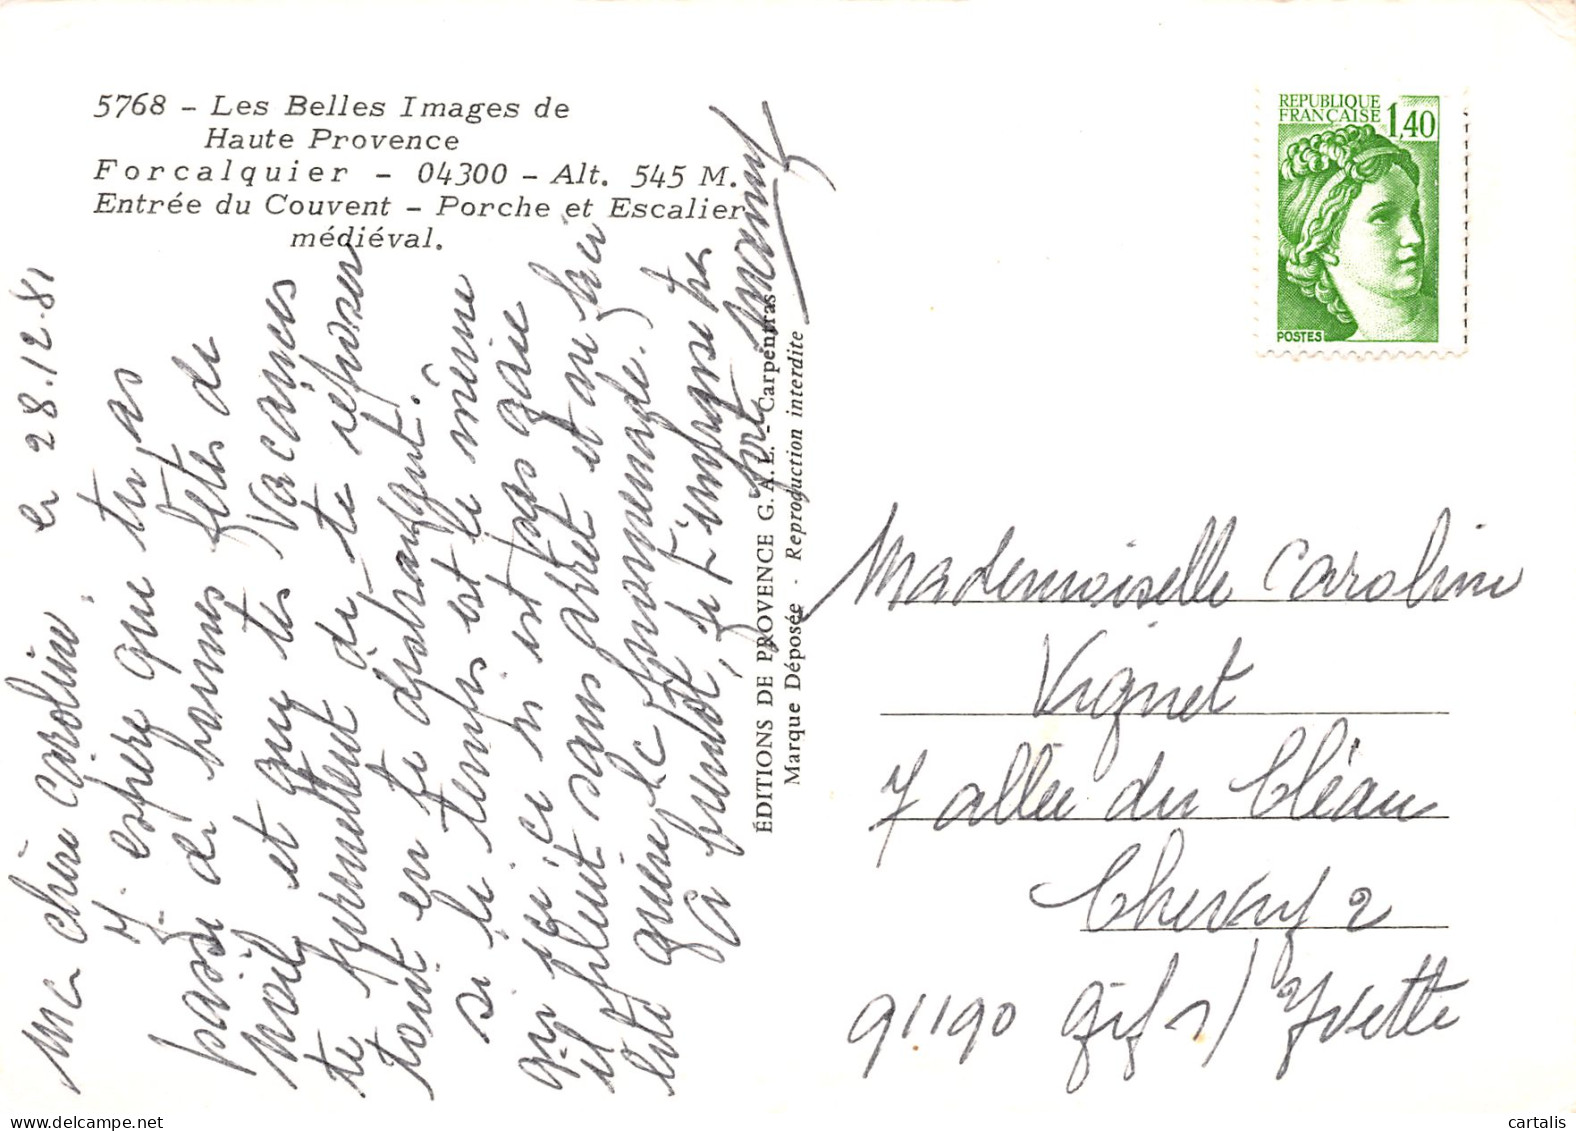 5768 - Les Belles Images de
Haute Provence
Forcalquier - 04300 - Alt. 545 M.
Entrée du Couvent - Porche et Escalier
médiéval.
le 28.12.81
Ma chère Caroline.
J'espère que tu as
passé de bonnes fêtes de
Noël et que tes Vacances
te permettent de te reposer
tout en te distrayant.
si le temps est le même
qu'ici ce n'est pas gaie
il pleut sans arret et ne fait
guère le promenade.)
A bientot, je t'embrasse
ÉDITIONS DE PROVENCE G.A.L. - Carpentras
Marque Déposée - Reproduction interdite
REPUBLIQUE
FRANÇAISE 1,40
POSTES
Mademoiselle Caroline
Vignet
7 allée du Cléau
Chevry 2
91190 Gif s/ Yvette
cartalis